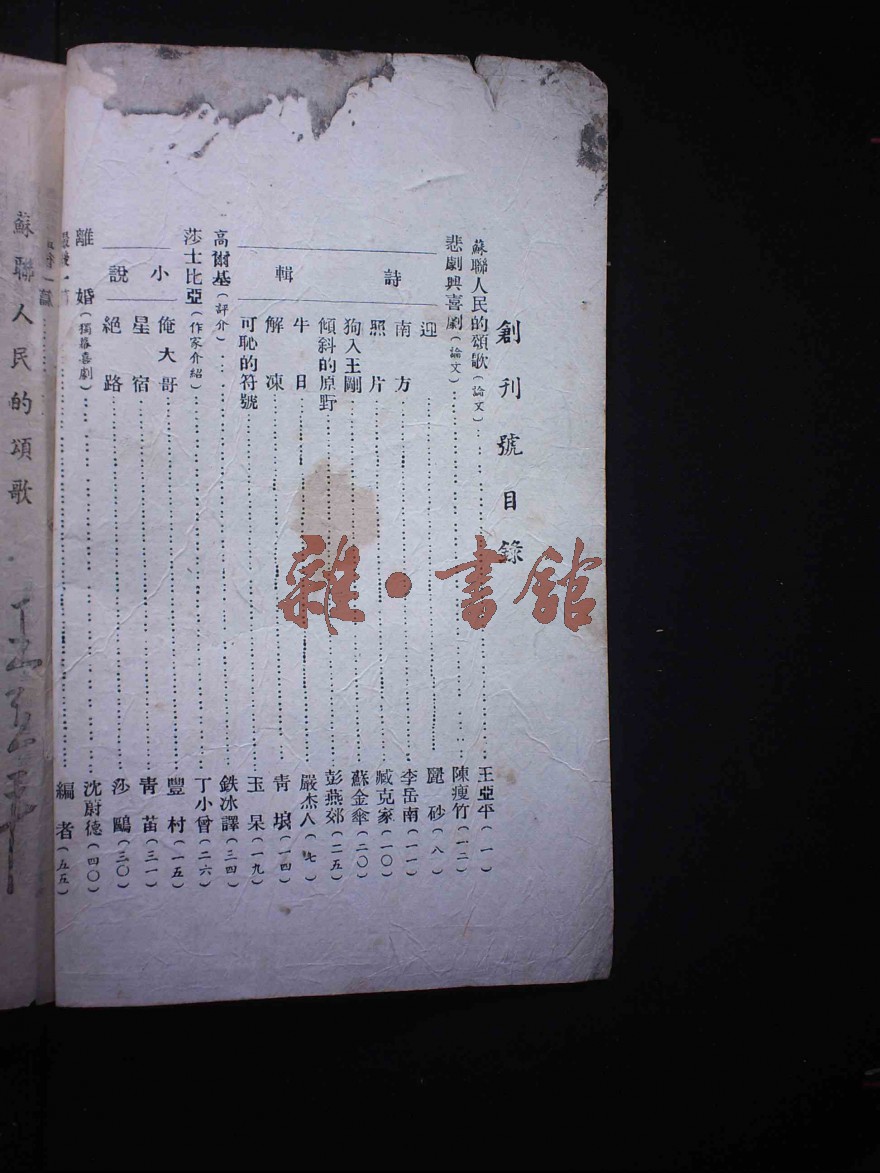 創刊號目錄
蘇聯人民的頌歌(論文)……王亞平(一)
悲劇與喜劇(論文)……陳瘦竹(一二)
詩輯
迎……砂(八)
南方……李岳南(一一)
照片……臧克家(一〇)
狗入王剛……蘇金傘(二〇)
傾斜的原野……彭燕郊(二五)
牛日……嚴杰人(七)
解凍……青(一四)
可恥的符號……玉杲(一九)
高爾基(評介)……鉄冰譯(三四)
莎士比亞(作家介紹)……丁小曾(二六)
小說
俺大哥……豐村(一五)
星宿……青苗(三一)
絕路……莎鷗(三〇)
離婚(獨幕喜劇)……沈蔚德(四〇)
編者(五五)
蘇聯人民的頌歌
雜·書館